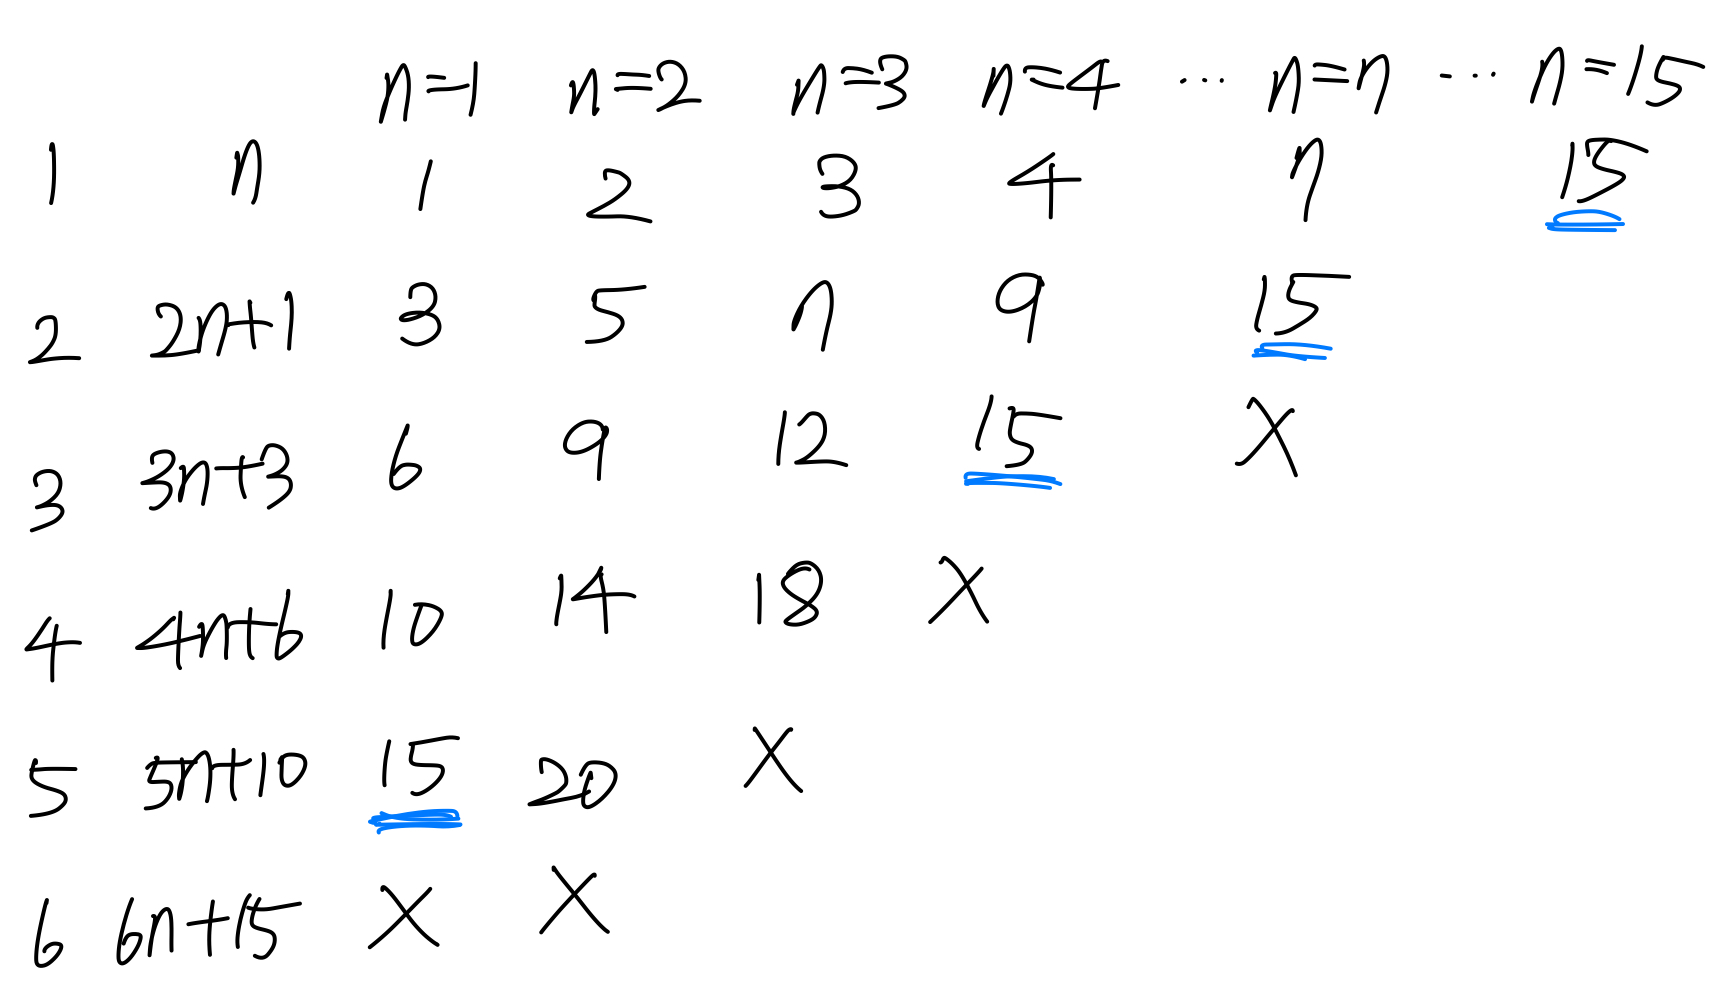 n=1 n=2 n=3 n=4 ... n=n ... n=15
1 n 1 2 3 4 7 15
2 2n+1 3 5 7 9 15
3 3n+3 6 9 12 15 X
4 4n+6 10 14 18 X
5 5n+10 15 20 X
6 6n+15 X X